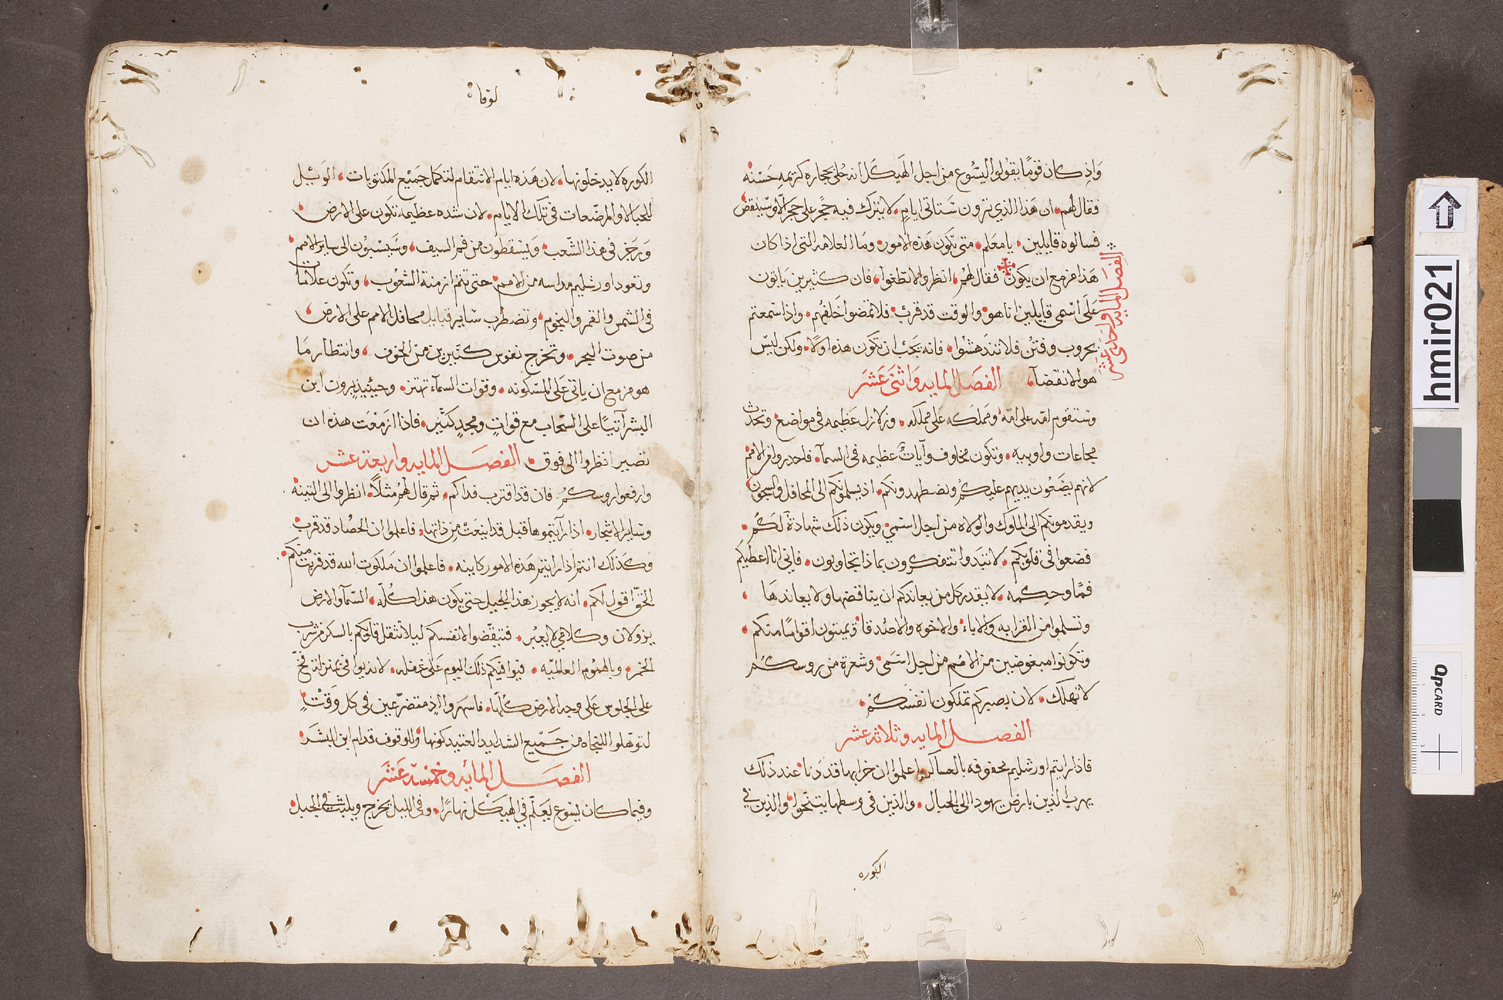 واذ كان قوما يقولوا ليسوع من اجل الهيكل انه حلي بحجاره كريمه حسنه
فقال لهم ان هذا الذي ترون ستاتي ايام لا يترك فيه حجر على حجر الا وسينقض
فسالوه قايلين يا معلم متى تكون هذه الامور وما العلامه التي اذا كان
هذا مزمع ان يكون فقال لهم انظروا لا تطغوا فان كثيرين ياتون
على اسمي قايلين انا هو والوقت قد قرب فلا تمضوا خلفهم واذا سمعتم
بحروب وفتن فلا تندهشوا فانه يجب ان تكون هذه اولا ولكن ليس
هو الانقضآ الفصل المايه واثنى عشر
الفصل المايه واحدى عشر
وستقوم امه على امه ومملكه على مملكه وزلازل عظيمه في مواضع وتحدث
مجاعات واوبيه وتكون مخاوف وآيات عظيمه في السمآ فاحذروا من الامم
لانهم يضعون يديهم عليكم ويضطهدونكم اذ يسلمونكم الى المحافل والسجون
ويقدمونكم الى الملوك والولاه من اجل اسمي ويكون ذلك شهادة لكم
فضعوا في قلوبكم لا تبتدوا تتفكرون بماذا تجاوبون فاني انا اعطيكم
فمًا وحكمه لا يقدر كل من يعاندكم ان يناقضها ولا يعاندها
وتسلموا من القرابه والاباء والاخوه والاصدقا ويميتون اقوامًا منكم
وتكونوا مبغوضين من الامم من اجل اسمي وشعرة من روسكم
لا تهلك لان بصبركم تملكون انفسكم
الفصل المايه وثلاثه عشر
فاذا رايتم اورشليم محفوفه بالعساكر اعلموا ان خرابها قد دنا عند ذلك
يهرب الذين بارض يهودا الى الجبال والذين في وسطها ينتحوا والذين في
الكوره
لوقا
الكوره لا يدخلونها لان هذه ايام الانتقام لتكمل جميع المكتوبات الويل
للحبالا والمرضعات في تلك الايام لان شده عظيمه تكون على الارض
ورجز في هذا الشعب ويسقطون من فم السيف ويسبون الى ساير الامم
وتعود اورشليم مداسه من الامم حتى تتم ازمنة الشعوب وتكون علامات
في الشمس والقمر والنجوم وتضطرب ساير قبايل محافل الامم على الارض
من صوت البحر وتخرج نفوس كثيرين من الخوف وانتظار ما
هو مزمع ان ياتي على المسكونه وقوات السمآ تهتز وحينيذ يرون ابن
البشر آتيًا على السحاب مع قوات ومجد كثير فاذا ازمعت هذه ان
تصير انظروا الى فوق الفصل المايه واربعة عشر
وارفعوا روسكم فان قد اقترب فداكم ثم قال لهم مثلًا انظروا الى التينه
وساير الاشجار اذا رايتموها قبل قد اينعت من ذاتها فاعلموا ان الحصاد قد قرب
وكذلك انتم اذا رايتم هذه الامور كاينه فاعلموا ان ملكوت الله قد قربت منكم
الحق اقول لكم انه لا يجوز هذا الجيل حتى يكون هذا كله السمآ والارض
يزولان وكلامي لا يعبر فتيقضوا لانفسكم ليلا تثقل قلوبكم بالسكر وشرب
الخمر وبالهموم العالميه فيوافيكم ذلك اليوم على غفله لانه يوافي بمنزلة فخ
على الجلوس على وجه الارض كلها فاسهروا اذ متضرعين في كل وقت
لتوهلوا للنجاه من جميع الشدايد العتيد كونها والوقوف قدام ابن البشر
الفصل المايه وخمسة عشر
وفيما كان يسوع يعلم في الهيكل نهارًا وفي الليل يخرج ويلبث في الجبل
hmir021
QP CARD